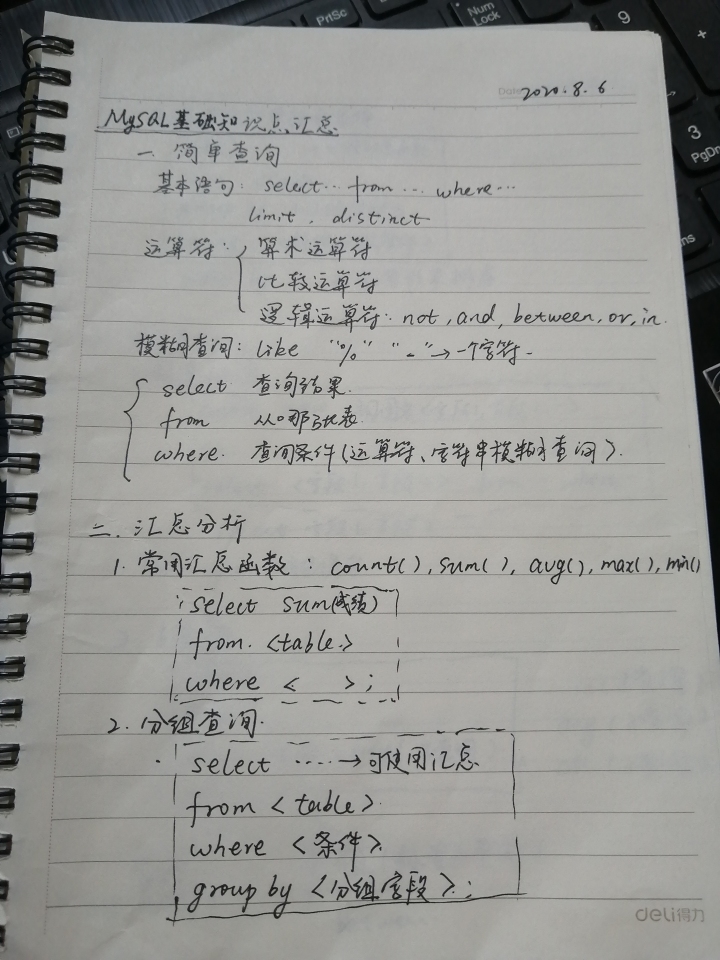 PrtSc
Num
Lock
9
+
3
PgDn
Date 2020.8.6
MySQL基础知识点汇总
一、简单查询
基本语句: select… from … where…
limit、distinct
运算符: 算术运算符
比较运算符
逻辑运算符: not, and, between, or, in.
模糊查询: like "%" "_"→一个字符.
select 查询结果.
from 从哪张表
where. 查询条件(运算符、字符串模糊查询).
二.汇总分析
1.常用汇总函数: count(), sum( ), avg(), max(), min()
select sum(成绩)
from. <table>
where < >;
2.分组查询.
select ‥‥→可使用汇总
from <table>.
where <条件>.
group by <分组字段>;
deli得力